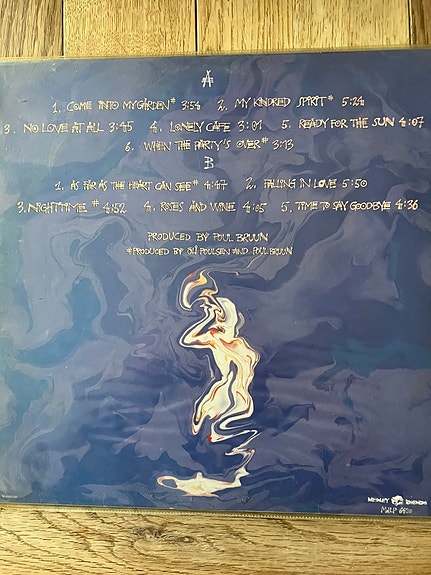 A
1. COME INTO MY GARDEN* 3:54 2. MY KINDRED SPIRIT* 5:24
3. NO LOVE AT ALL 3:45 4. LONELY CAFE 3:01 5. READY FOR THE SUN 4:07
6. WHEN THE PARTY'S OVER* 3:13
B
1. AS FAR AS THE HEART CAN SEE* 4:47 2. FALLING IN LOVE 5:50
3. NIGHTTIME * 4:52 4. ROSES AND WINE 4:05 5. TIME TO SAY GOODBYE 4:36
PRODUCED BY POUL BRUUN
*PRODUCED BY OLI POULSEN AND POUL BRUUN
MEDLEY RECORDS